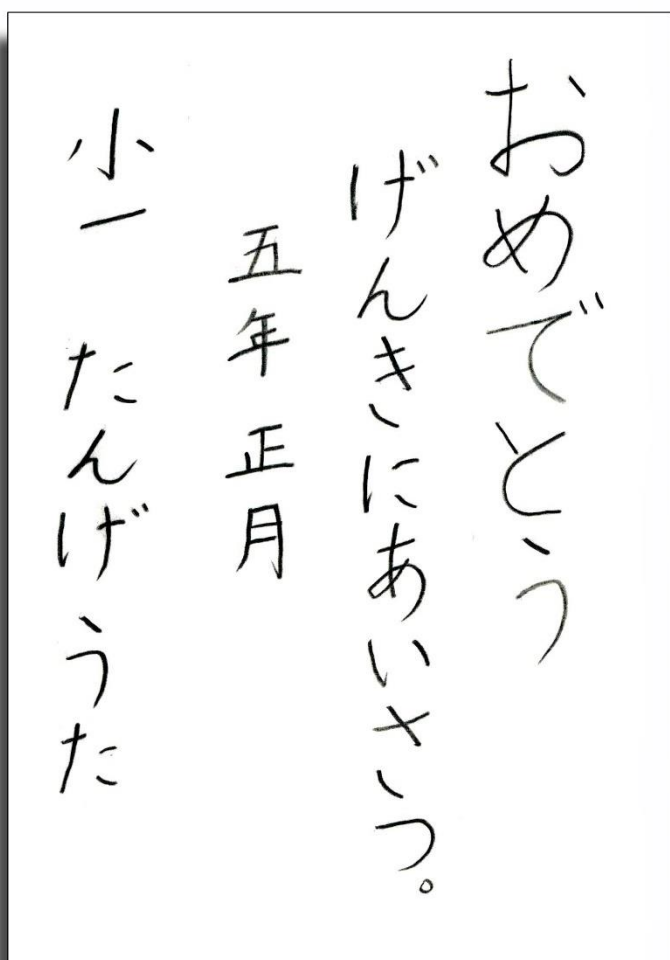 おめでとう
げんきにあいさつ。
五年 正月
小一 たんげ うた